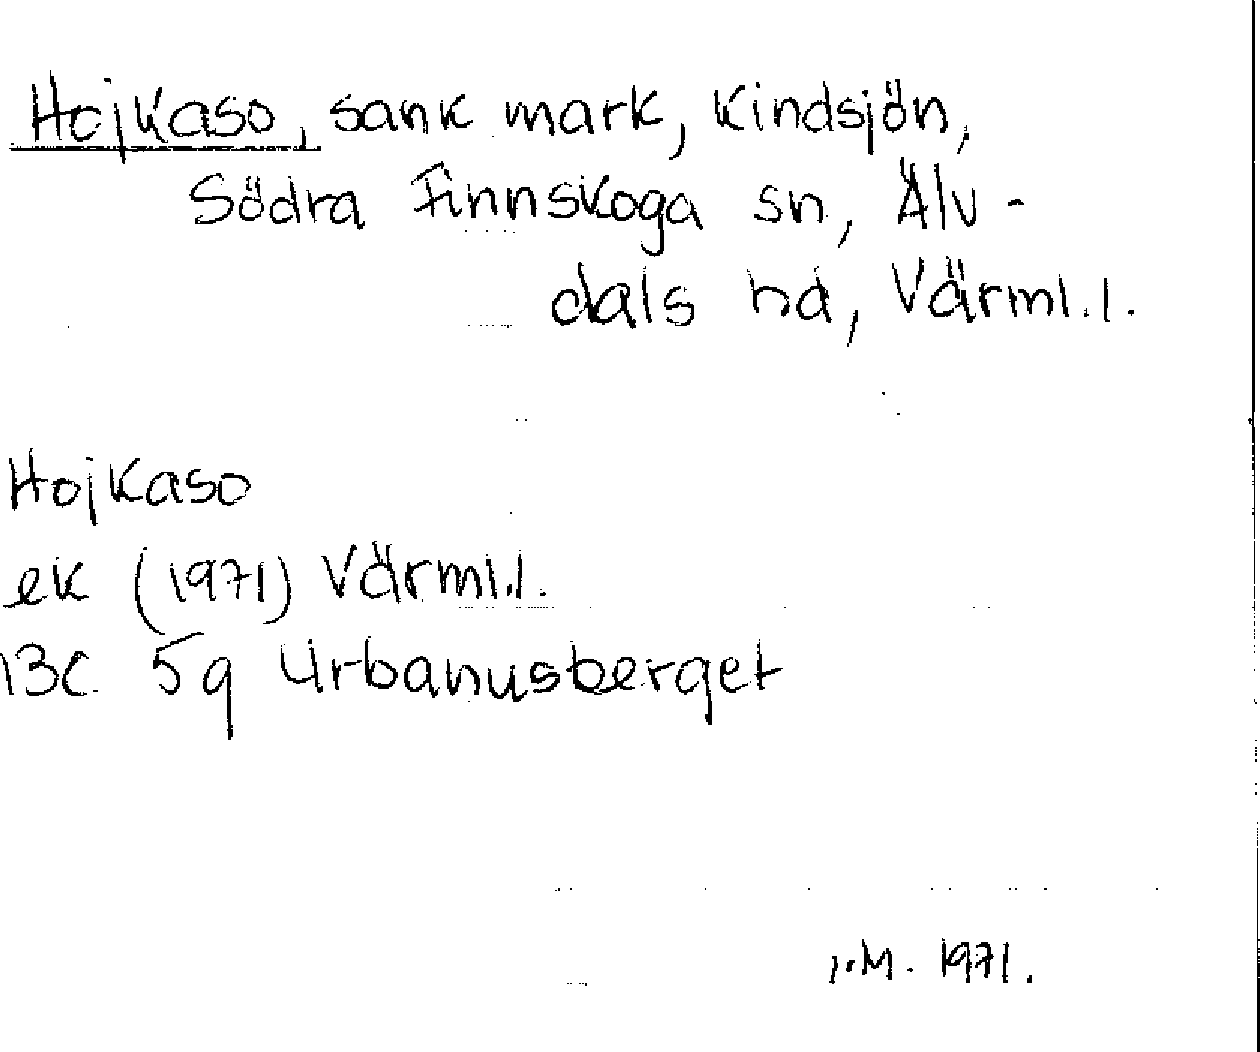 Hojkaso, sank mark, Kindsjön,
Södra Finnskoga sn, Älv-
dals hd, Värml.l.
Hojkaso
ek (1971) Värml.l.
13C 5g Urbanusberget
M. 1971.